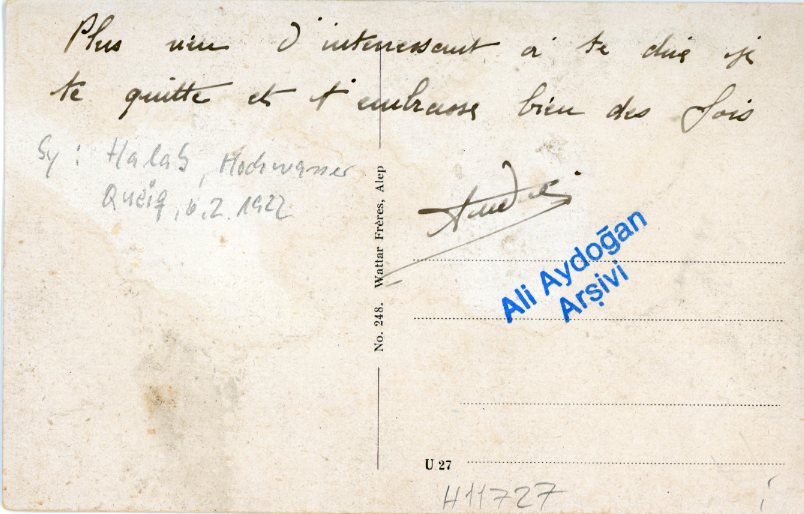 Plus rien d'interressant à te dire je
te quitte et t'embrasse bien des fois
André
Sy: Halab, Hochwasser
Queiq, 6.2.1922
No. 248. Wattar Frères, Alep
Ali Aydoğan
Arşivi
U 27
H11727